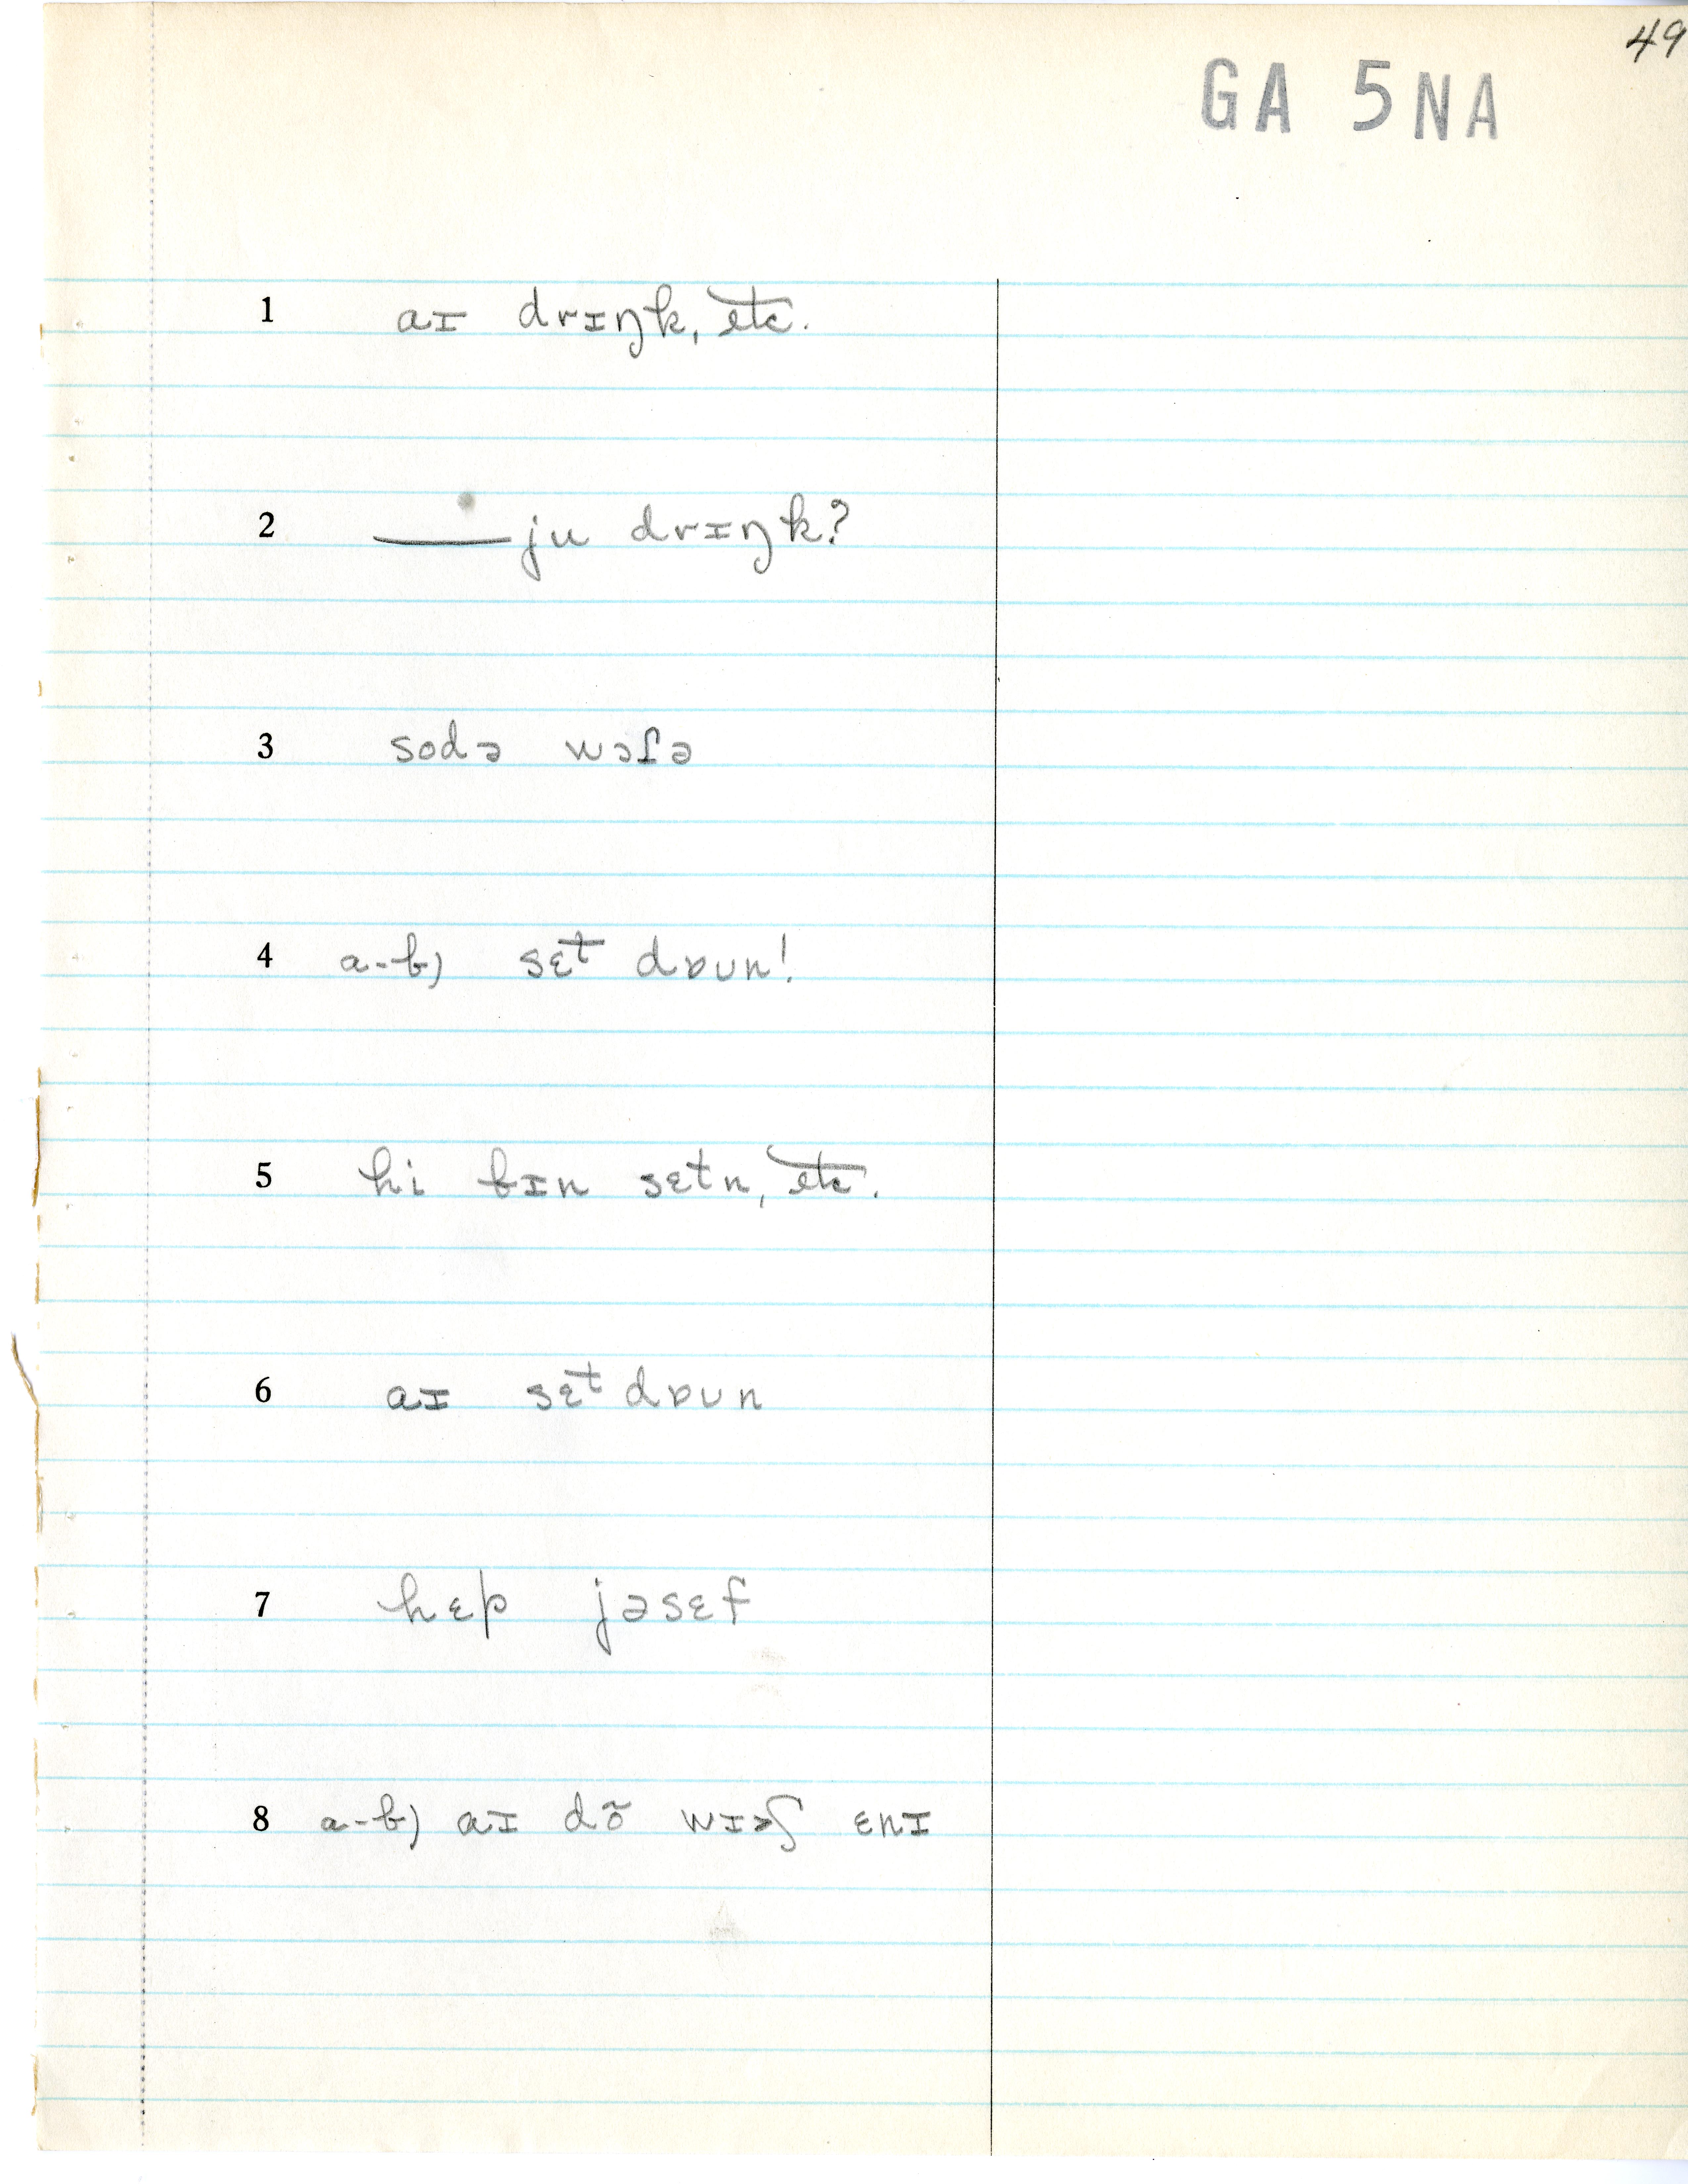 49
GA 5NA
1 aɪ drɪŋk, etc.
2 ____ ju drɪŋk?
3 sodə wɔɾə
4 a-b) sɛt dɒʊn!
5 hi bɪn sɛtn, etc.
6 aɪ sɛt dɒʊn
7 hɛp jəsɛf
8 a-b) aɪ dõ wɪʃ ɛnɪ